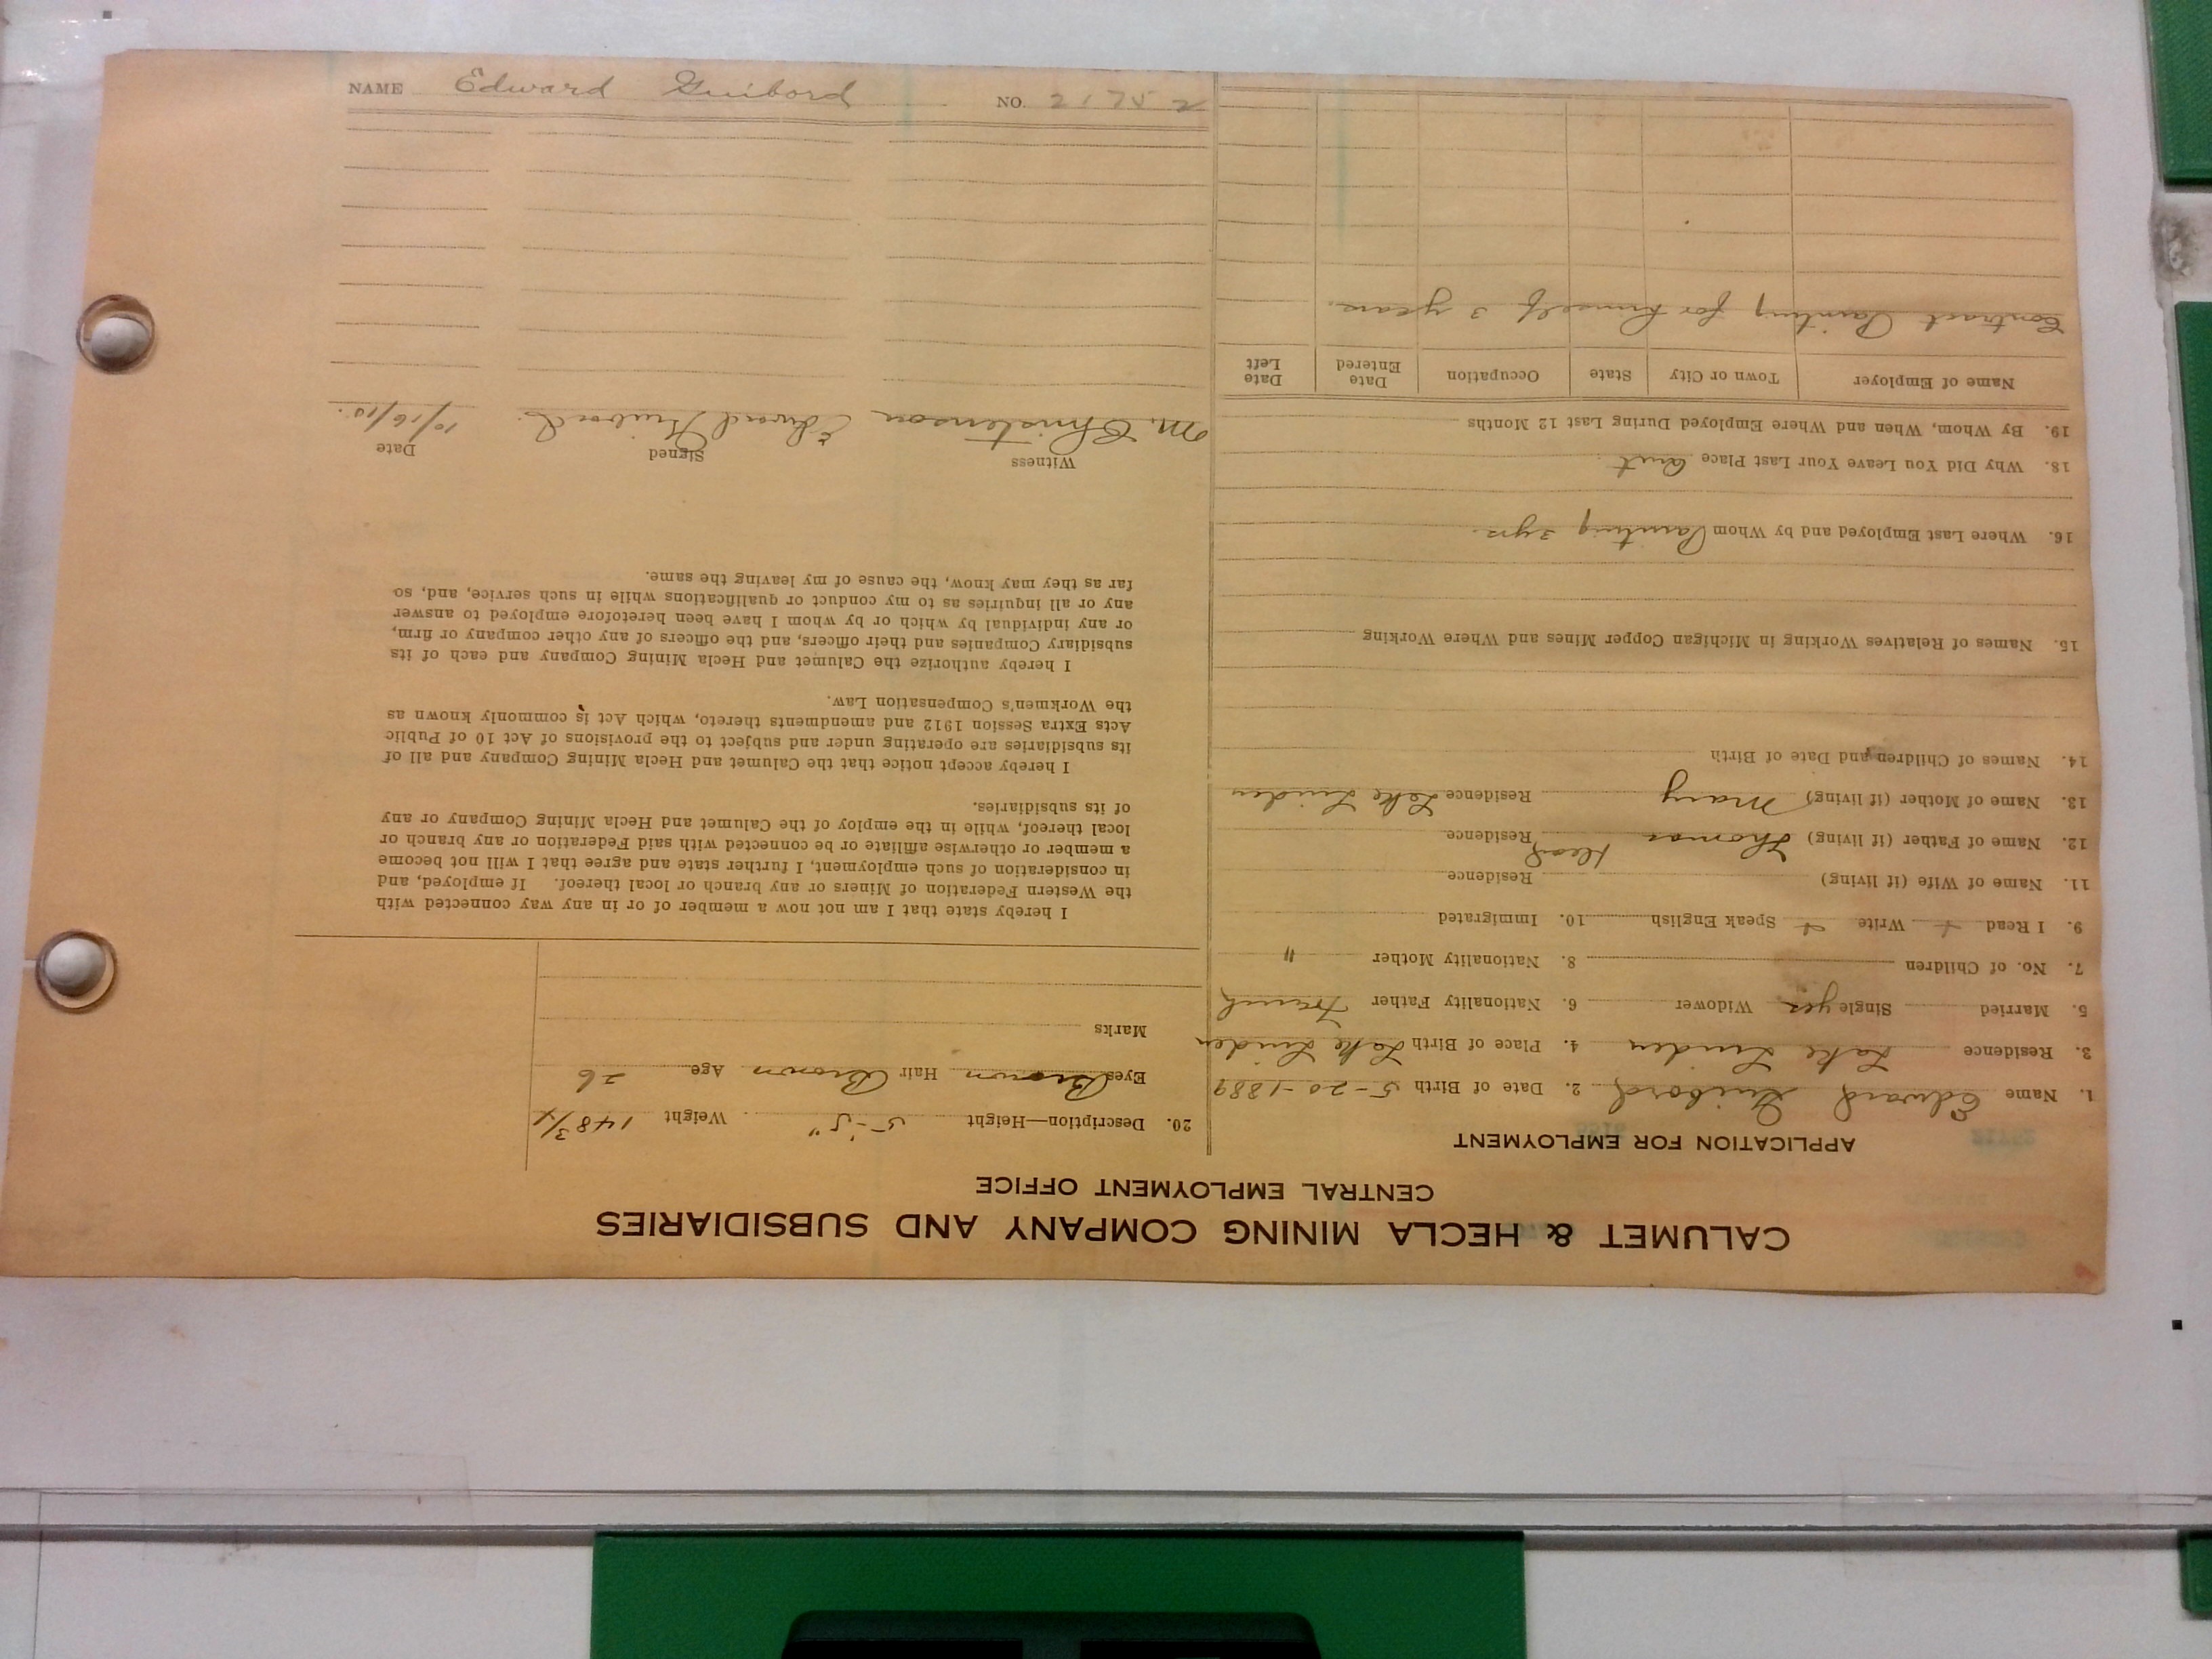 CALUMET & HECLA MINING COMPANY AND SUBSIDIARIES
CENTRAL EMPLOYMENT OFFICE
APPLICATION FOR EMPLOYMENT
1. Name Edward Guibord 2. Date of Birth 5-20-1889
3. Residence Lake Linden 4. Place of Birth Lake Linden
5. Married Single yes Widower 6. Nationality Father French
7. No. of Children 8. Nationality Mother "
9. I Read + Write + Speak English 10. Immigrated
11. Name of Wife (if living) Residence
12. Name of Father (if living) Thomas Dead Residence
13. Name of Mother (if living) Mary Residence Lake Linden
14. Names of Children and Date of Birth
15. Names of Relatives Working in Michigan Copper Mines and Where Working
16. Where Last Employed and by Whom Painting 3 yrs.
18. Why Did You Leave Your Last Place
19. By Whom, When and Where Employed During Last 12 Months
Name of Employer Town or City State Occupation Date Entered Date Left
Contract Painting for himself 3 years.
20. Description—Height 5'-5" Weight 148 3/4
Eyes Brown Hair Brown Age 26
Marks
I hereby state that I am not now a member of or in any way connected with
the Western Federation of Miners or any branch or local thereof. If employed, and
in consideration of such employment, I further state and agree that I will not become
a member or otherwise affiliate or be connected with said Federation or any branch or
local thereof, while in the employ of the Calumet and Hecla Mining Company or any
of its subsidiaries.
I hereby accept notice that the Calumet and Hecla Mining Company and all of
its subsidiaries are operating under and subject to the provisions of Act 10 of Public
Acts Extra Session 1912 and amendments thereto, which Act is commonly known as
the Workmen's Compensation Law.
I hereby authorize the Calumet and Hecla Mining Company and each of its
subsidiary Companies and their officers, and the officers of any other company or firm,
or any individual by which or by whom I have been heretofore employed to answer
any or all inquiries as to my conduct or qualifications while in such service, and, so
far as they may know, the cause of my leaving the same.
Witness Signed Date
M. Christenson Edward Guibord 10/16/15.
NAME Edward Guibord NO. 21752